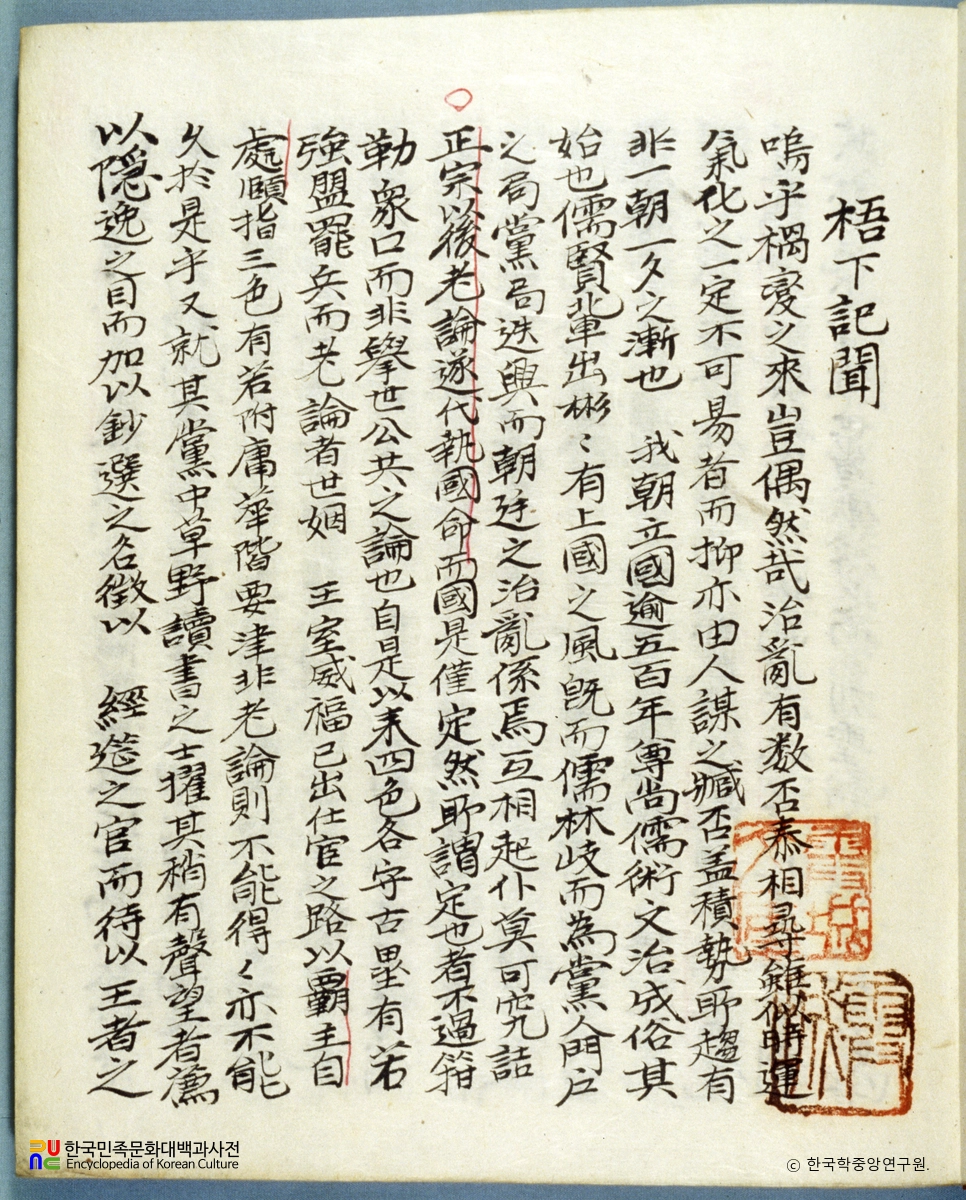 梧下記聞
嗚乎禍變之來豈偶然哉治亂有数否泰相尋雖似時運
氣化之一定不可易者而抑亦由人謀之臧否盖積勢所趨有
非一朝一夕之漸也 我朝立國逾五百年尊尚儒術文治成俗其
始也儒賢輩出彬〻有上國之風旣而儒林歧而為黨人門户
之局黨局迭興而朝廷之治亂係焉互相起仆莫可究詰
正宗以後老論遂代執國命而國是僅定然所謂定也者不過箝
勒衆口而非擧世公共之論也自是以来四色各守古壘有若
強盟罷兵而老論者世姻 王室威福已出仕宦之路以覇主自
處頤指三色有若附庸華階要津非老論則不能得〻亦不能
久於是乎又就其黨中草野讀書之士擢其稍有聲望者薦
以隱逸之目而加以鈔選之名徵以 經筵之官而待以王者之
한국민족문화대백과사전
Encyclopedia of Korean Culture
ⓒ 한국학중앙연구원.